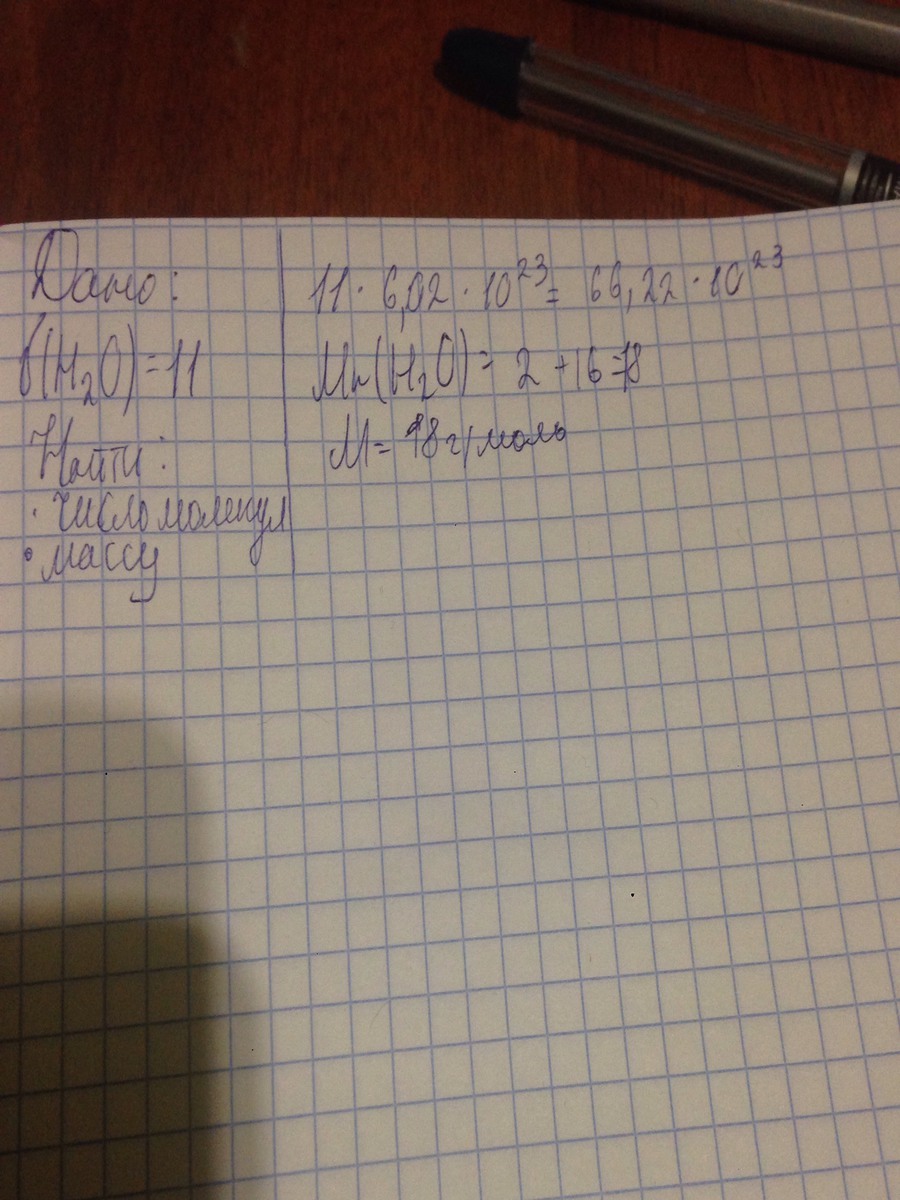 Дано:
(H₂O)=11
Найти:
· число молекул
• массу
11 · 6,02 · 10²³ = 66,22 · 10²³
Mr(H₂O) = 2 + 16 = 18
M = 18 г/моль